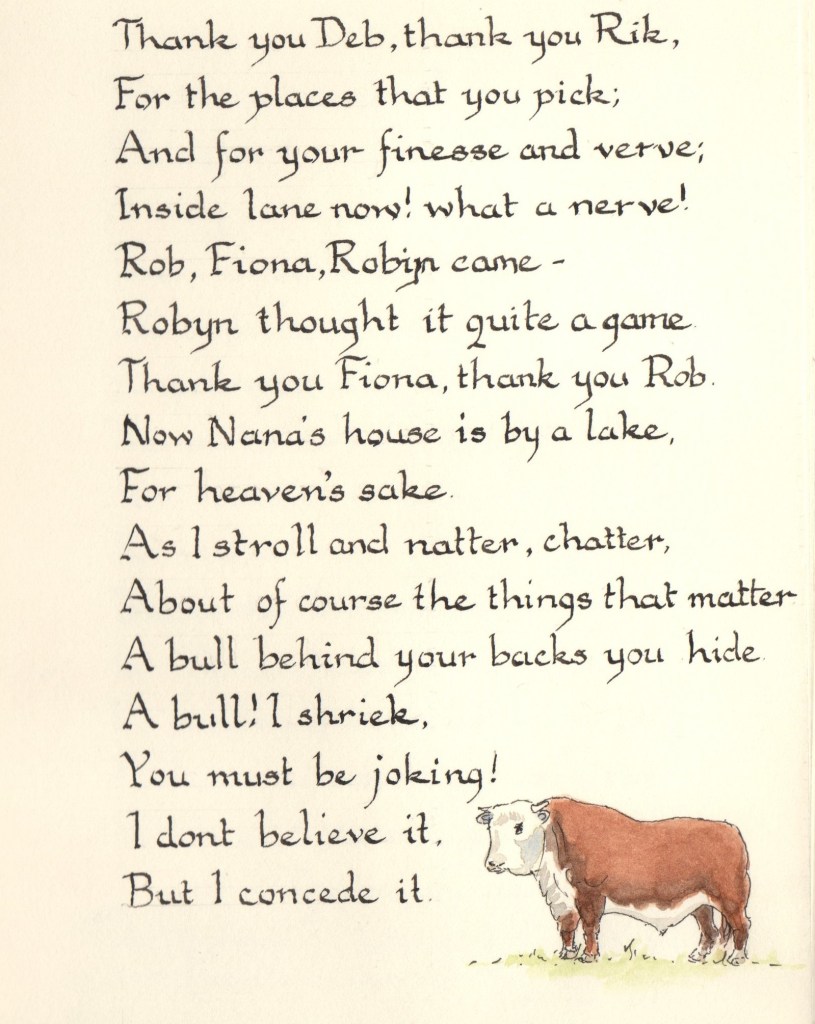 Thank you Deb, thank you Rik,
For the places that you pick;
And for your finesse and verve;
Inside lane now! what a nerve!
Rob, Fiona, Robyn came -
Robyn thought it quite a game.
Thank you Fiona, thank you Rob.
Now Nana's house is by a lake,
For heaven's sake.
As I stroll and natter, chatter,
About of course the things that matter
A bull behind your backs you hide.
A bull! I shriek,
You must be joking!
I dont believe it,
But I concede it.